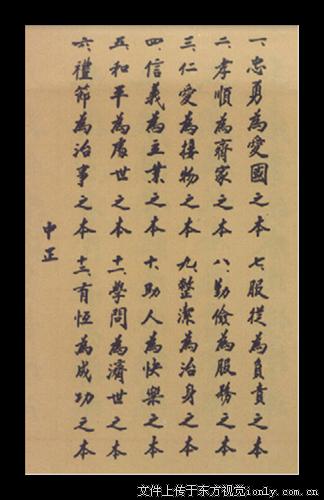 一、忠勇為愛國之本
二、孝順為齊家之本
三、仁愛為接物之本
四、信義為立業之本
五、和平為處世之本
六、禮節為治事之本
七、服從為負責之本
八、勤儉為服務之本
九、整潔為治身之本
十、助人為快樂之本
十一、學問為濟世之本
十二、有恆為成功之本
中正
文件上传于东方视觉ionly.com.cn